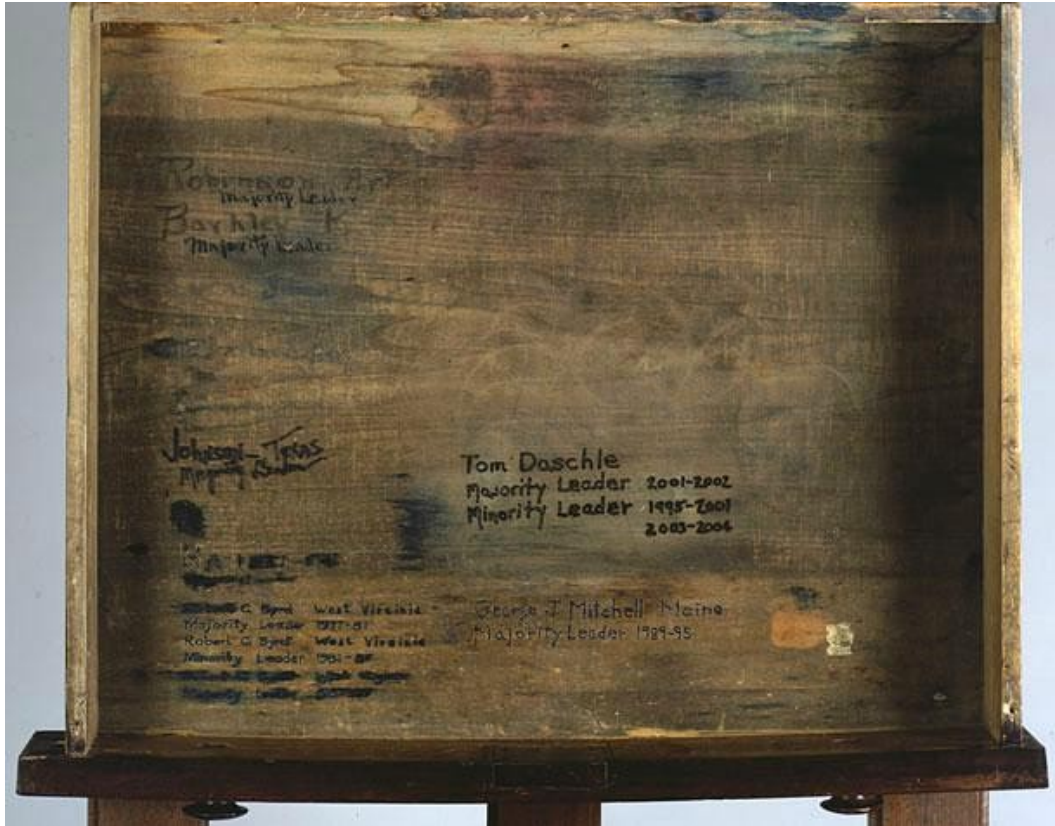 Robinson Ark
Majority Leader
Barkley K
Majority Leader
Johnson - Texas
Majority Leader
Tom Daschle
Majority Leader 2001-2002
Minority Leader 1995-2001
2003-2004
C Byrd West Virginia
Majority Leader 1977-81
Robert C Byrd West Virginia
Minority Leader 1981-
Majority Leader
George J Mitchell Maine
Majority Leader 1989-95